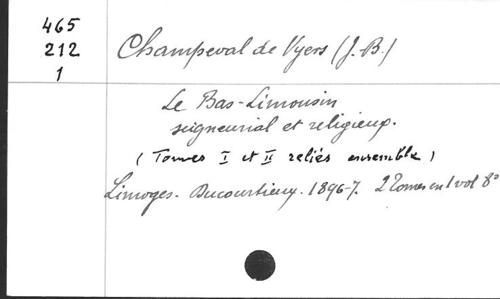 465
212
1
Champeval de Vyers (J.B.)
Le Bas-Limousin
seigneurial et religieux.
(Tomes I et II reliés ensemble)
Limoges. Ducourtieux. 1896-7. 2 Tomes en 1 vol 8°